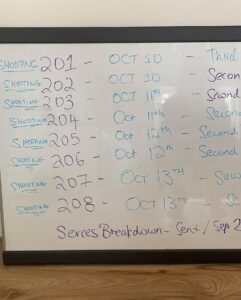 SHOOTING 201 - OCT 10 -
SHOOTING 202 - OCT 10 - Secon
SHOOTING 203 - OCT 11th - Second
SHOOTING 204 - Oct 11th - Second
SHOOTING 205 - Oct 12th - Second
SHOOTING 206 - Oct 12th - Second
SHOOTING 207 - OCT 13th -
SHOOTING 208 - OCT 13th -
Series Breakdown - Sent / Sep 2